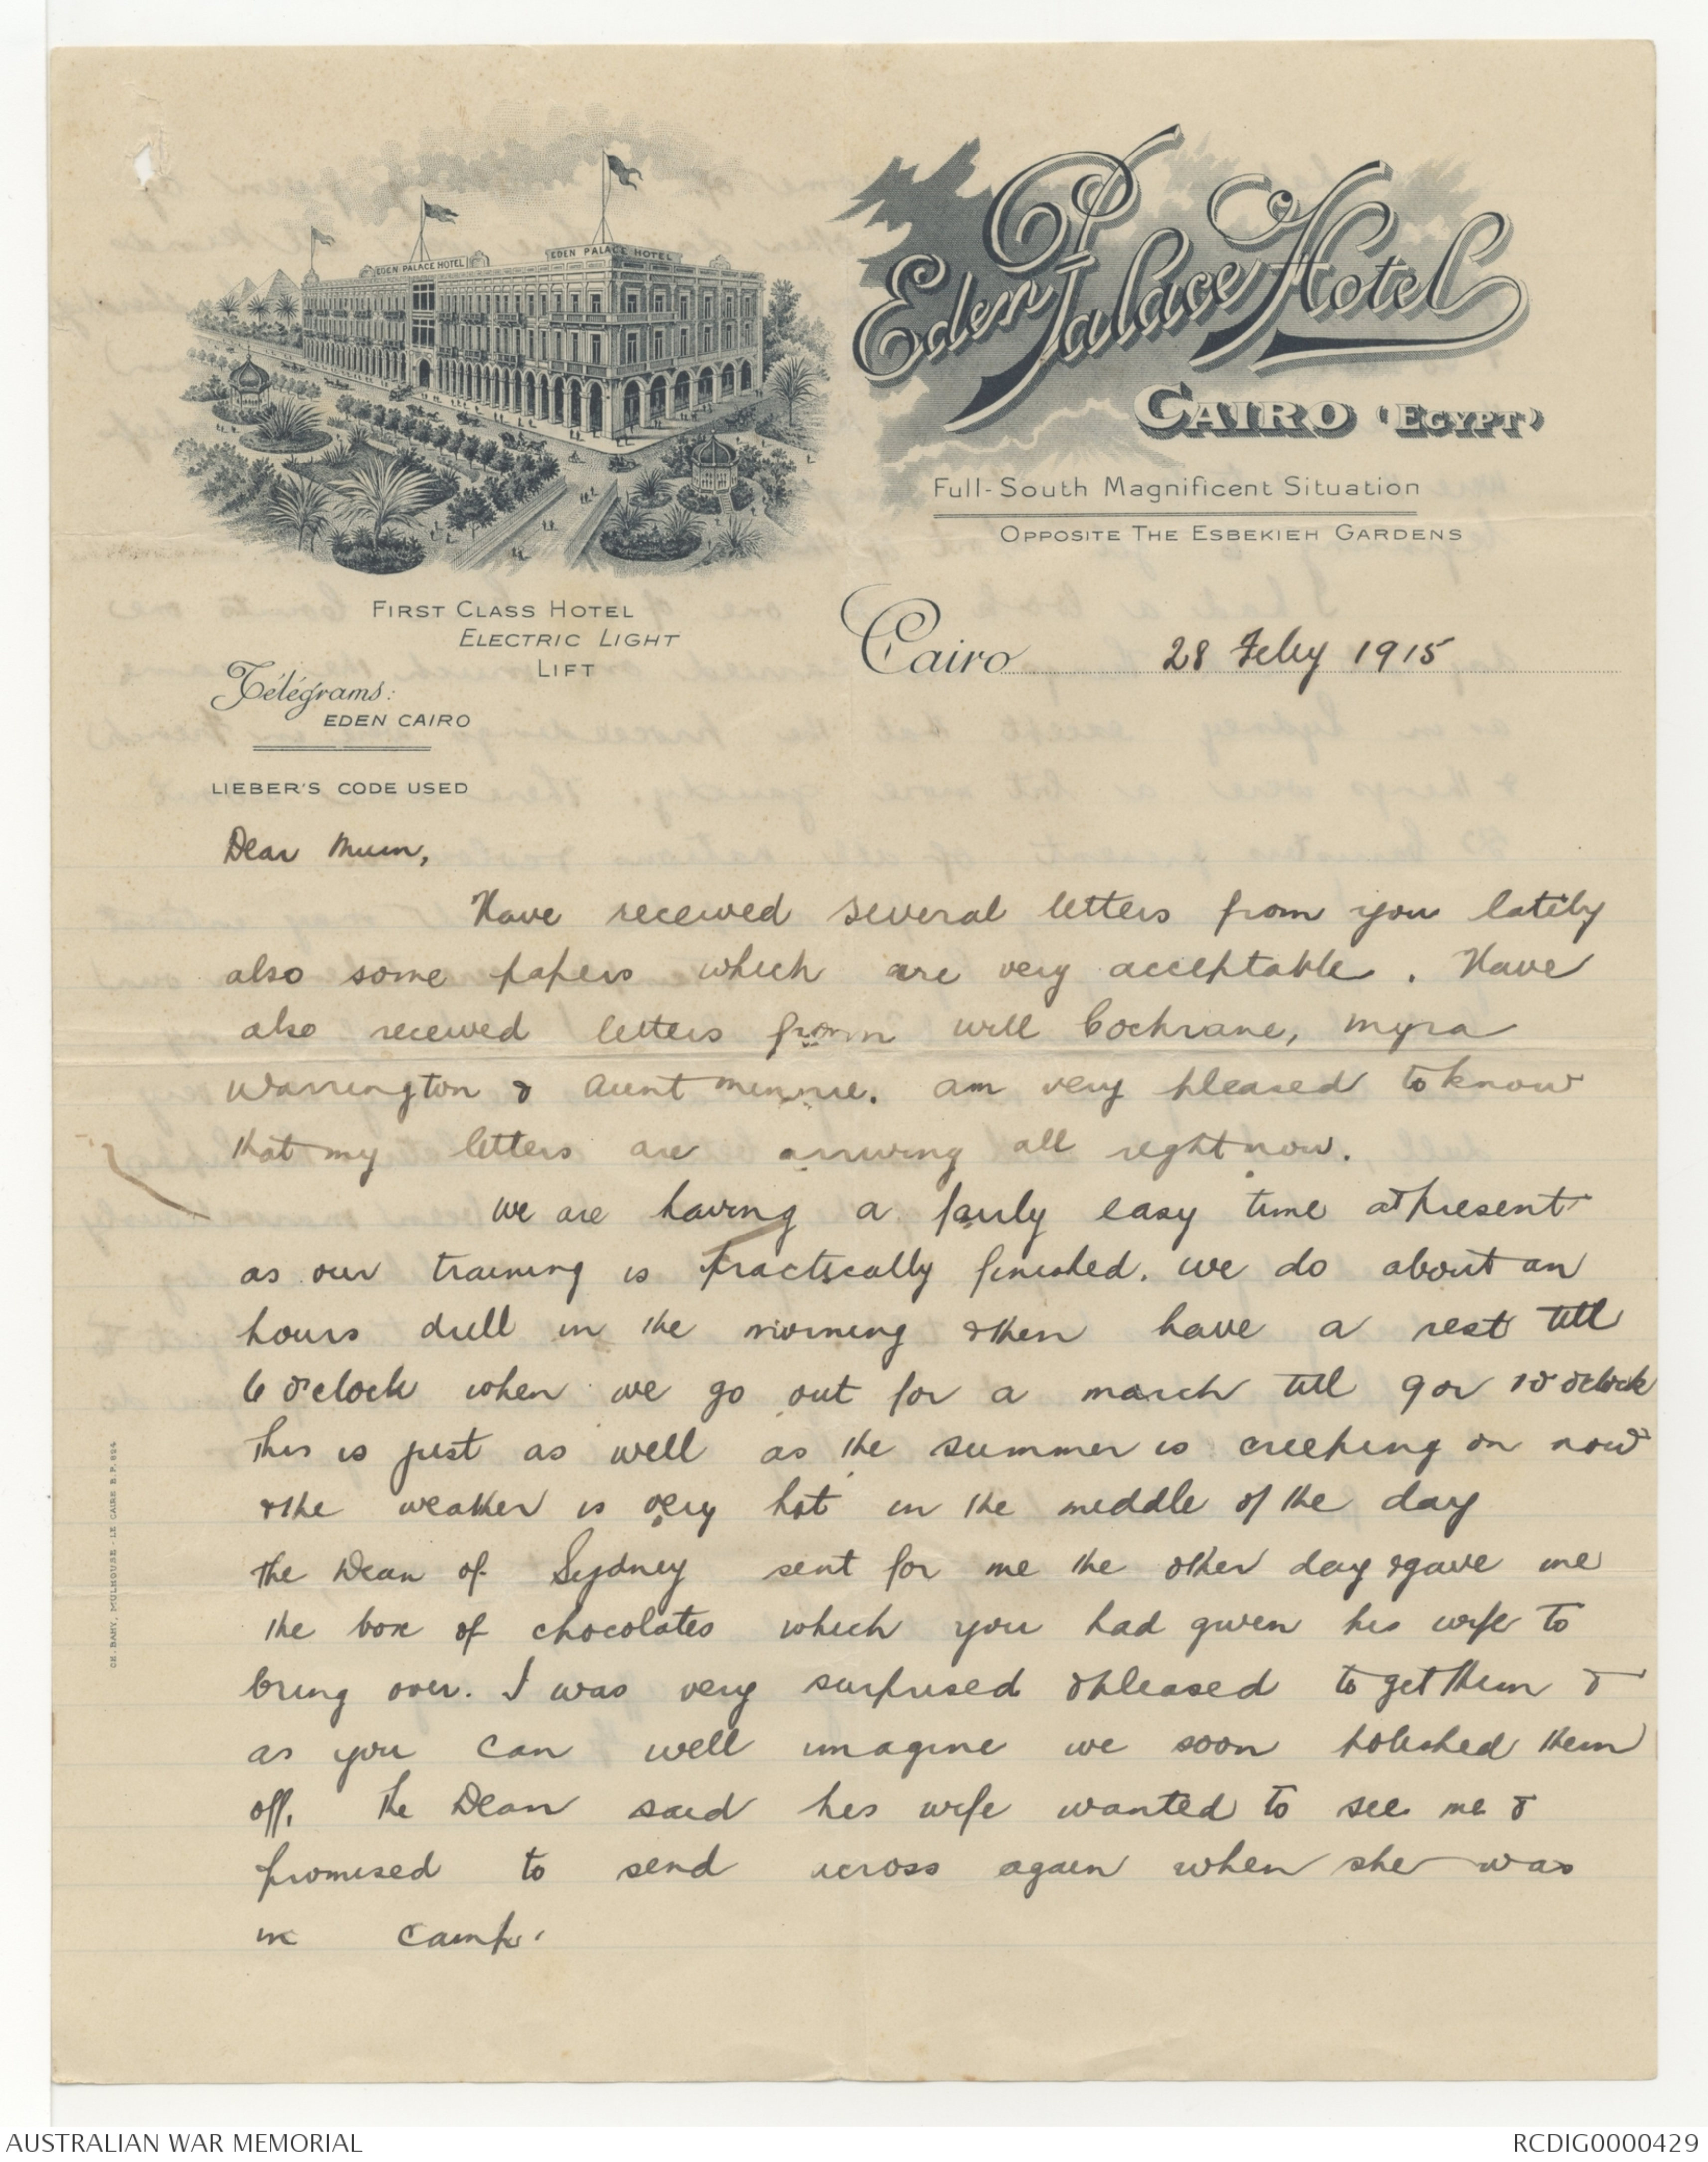 EDEN PALACE HOTEL
EDEN PALACE HOTEL
Eden Palace Hotel
CAIRO (EGYPT)
Full-South Magnificent Situation
OPPOSITE THE ESBEKIEH GARDENS
FIRST CLASS HOTEL
ELECTRIC LIGHT
LIFT
Télégrams:
EDEN CAIRO
LIEBER'S CODE USED
Cairo 28 Feby 1915
Dear Mum,
Have received several letters from you lately
also some papers which are very acceptable. Have
also received letters from Will Cochrane, Myra
Warrington & Aunt Minnie. Am very pleased to know
that my letters are arriving all right now.
We are having a fairly easy time at present
as our training is practically finished. We do about an
hours drill in the morning & then have a rest till
6 o'clock when we go out for a march till 9 or 10 oclock
This is just as well as the summer is creeping on now
& the weather is very hot in the middle of the day
The Dean of Sydney sent for me the other day & gave me
the box of chocolates which you had given his wife to
bring over. I was very surprised & pleased to get them &
as you can well imagine we soon polished them
off. The Dean said his wife wanted to see me &
promised to send across again when she was
in camp.
CH. BAHY, MULHOUSE - LE CAIRE B.P. 694
AUSTRALIAN WAR MEMORIAL
RCDIG0000429